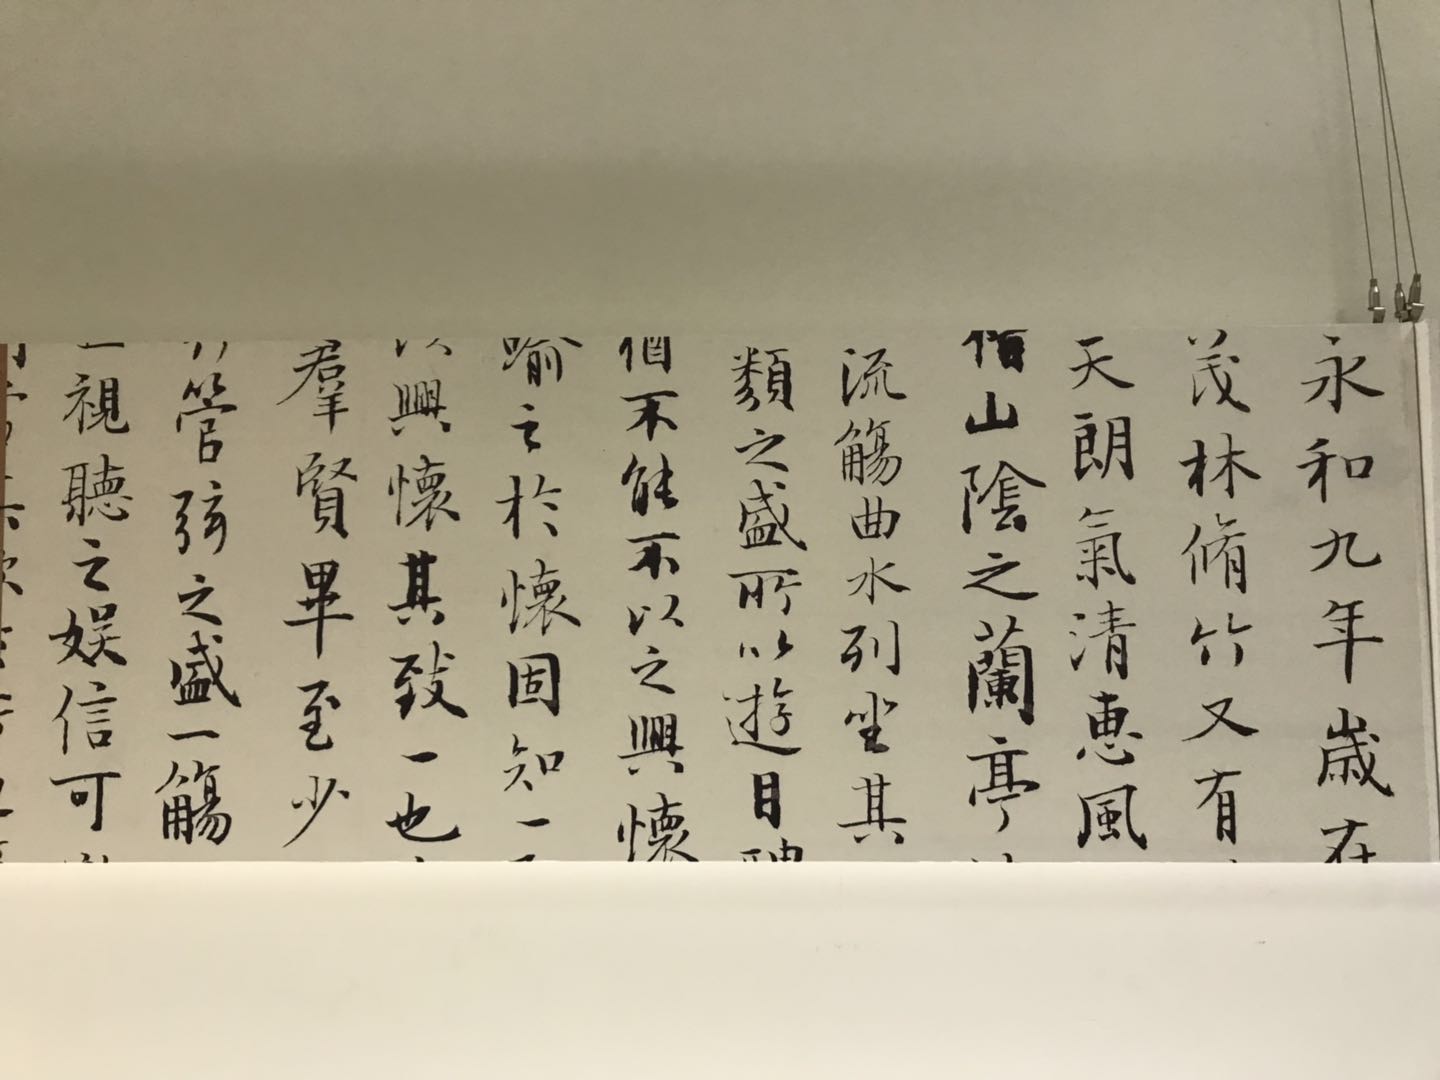 永和九年歲在
茂林脩竹又有
天朗氣清惠風
山陰之蘭亭
流觴曲水列坐其
類之盛所以遊目騁
不能不以之興懷
喻之於懷固知一
以興懷其致一也
羣賢畢至少
管弦之盛一觴
視聽之娛信可